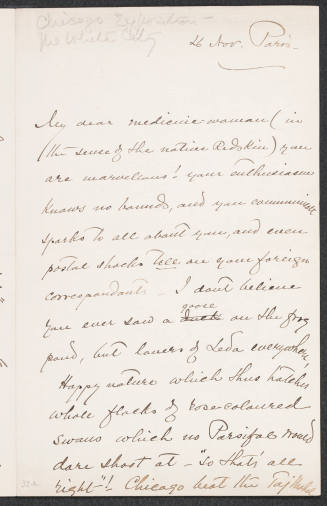 Chicago Exposition -
the White City
26 Nov. Paris -
My dear medicine-woman (in
(the sense of the native Redskin) you
are marvellous! your enthusiasm
knows no bounds, and you communicate
sparks to all about you, and even
postal shocks to your foreign
correspondants - I don't believe
goose
you ever saw a duck on the frog
pond, but lovers of Leda everywhere!
Happy nature which thus hatches
whole flocks of rose-coloured
swans which no Parsifal would
dare shoot at - "so that's all
right"! Chicago beat the Taj Mahal